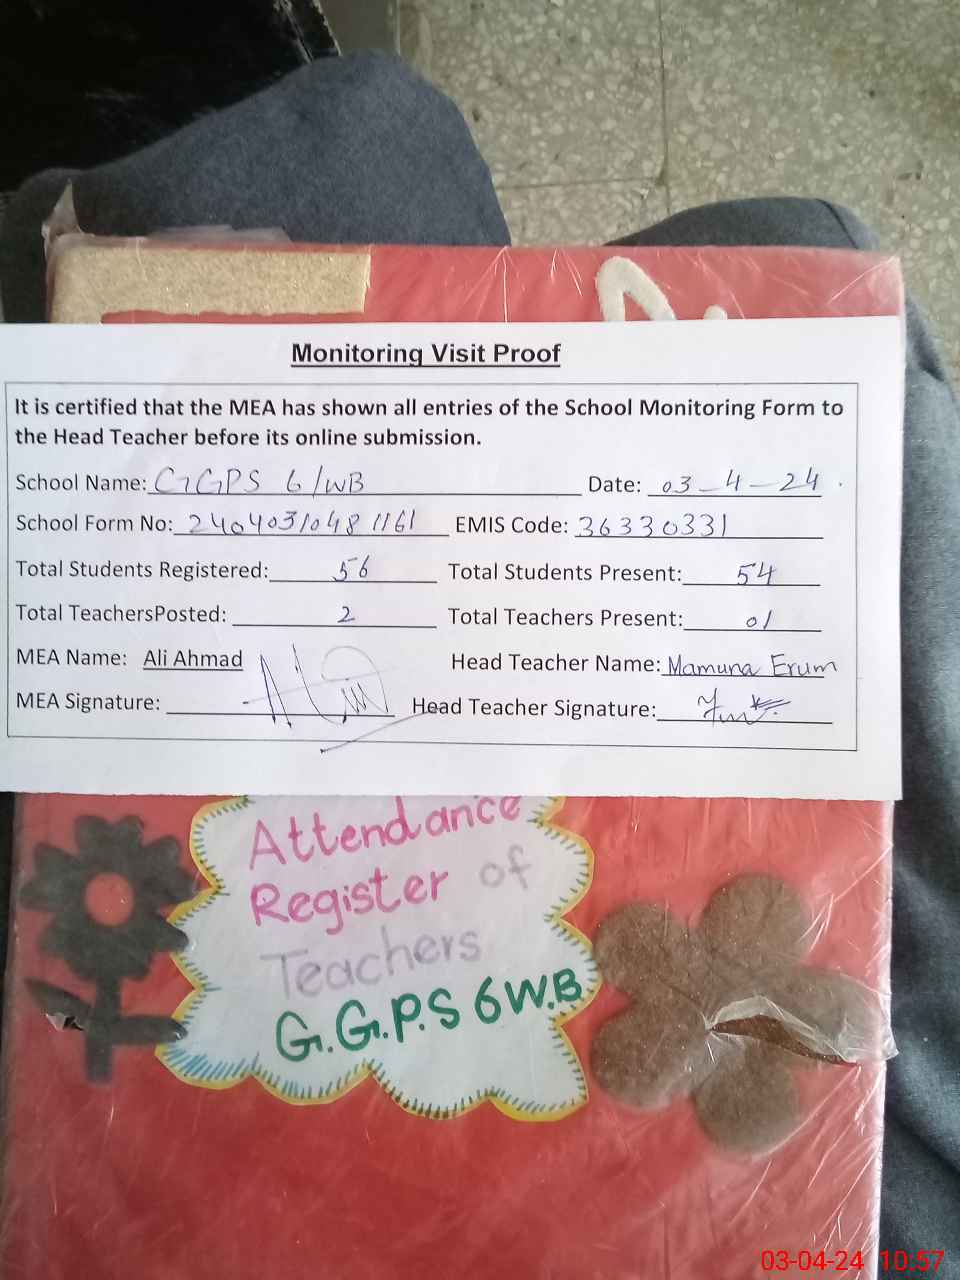 Monitoring Visit Proof
It is certified that the MEA has shown all entries of the School Monitoring Form to
the Head Teacher before its online submission.
School Name: GGPS 6/WB Date: 03-4-24
School Form No: 24040310481161 EMIS Code: 36330331
Total Students Registered: 56 Total Students Present: 54
Total TeachersPosted: 2 Total Teachers Present: 01
MEA Name: Ali Ahmad Head Teacher Name: Mamuna Erum
MEA Signature: Head Teacher Signature:
Attendance
Register of
Teachers
G.G.P.S 6 W.B
03-04-24 10:57